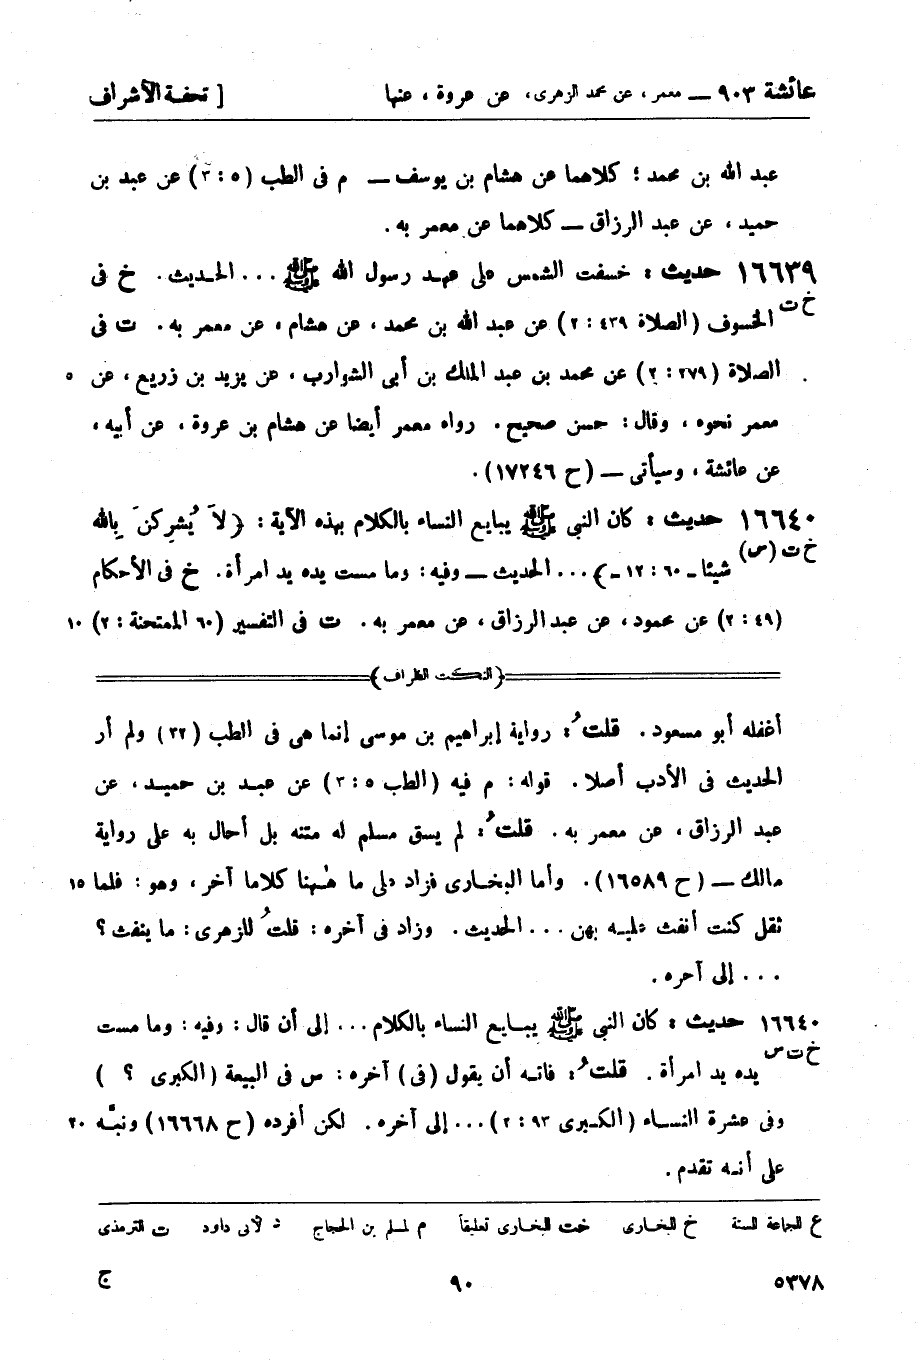 عائشة ٩٠٣ — معمر، عن محمد الزهرى، عن عروة، عنها [ تحفة الأشراف
عبد الله بن محمد؛ كلاهما عن هشام بن يوسف — م فى الطب (٥ : ٣) عن عبد بن
حميد، عن عبد الرزاق — كلاهما عن معمر به.
١٦٦٣٩ حديث : خسفت الشمس على عهد رسول الله ﷺ ... الحديث. خ فى
خ ت الخسوف (الصلاة ٤٣٩ : ٢) عن عبد الله بن محمد، عن هشام، عن معمر به. ت فى
الصلاة (٢٧٩ : ٢) عن محمد بن عبد الملك بن أبى الشوارب، عن يزيد بن زريع، عن ٥
معمر نحوه، وقال: حسن صحيح. رواه معمر أيضا عن هشام بن عروة، عن أبيه،
عن عائشة، وسيأتى — (ح ١٧٢٤٦).
١٦٦٤٠ حديث : كان النبى ﷺ يبايع النساء بالكلام بهذه الآية: ﴿لاَ يُشرِكنَ بِالله
خ ت (س) شيئا ـ ٦٠ : ١٢ ـ﴾ ... الحديث — وفيه: وما مست يده يد امرأة. خ فى الأحكام
(٤٩ : ٢) عن محمود، عن عبد الرزاق، عن معمر به. ت فى التفسير (٦٠ الممتحنة : ٢) ١٠
﴿النكت الظراف﴾
أغفله أبو مسعود. قلتُ: رواية إبراهيم بن موسى إنما هى فى الطب (٣٢) ولم أر
الحديث فى الأدب أصلا. قوله: م فيه (الطب ٥ : ٣) عن عبد بن حميد، عن
عبد الرزاق، عن معمر به. قلتُ: لم يسق مسلم له متنه بل أحال به على رواية
مالك — (ح ١٦٥٨٩). وأما البخارى فزاد على ما ههنا كلاما آخر، وهو: فلما ١٥
ثقل كنت أنفث عليه بهن ... الحديث. وزاد فى آخره: قلتُ للزهرى: ما ينفث؟
... إلى آحره.
١٦٦٤٠ حديث : كان النبى ﷺ يبايع النساء بالكلام ... إلى أن قال: وفيه: وما مست
خ ت س يده يد امرأة. قلتُ: فاته أن يقول (فى) آخره: س فى البيعة (الكبرى ؟ )
وفى عشرة النساء (الكبرى ٩٣ : ٢) ... إلى آخره. لكن أفرده (ح ١٦٦٦٨) ونبّه ٢٠
على أنه تقدم.
ع للجماعة الستة خ للبخارى خت للبخارى تعليقاً م لمسلم بن الحجاج د لأبى داود ت للترمذى
٥٣٧٨ ٩٠ ج